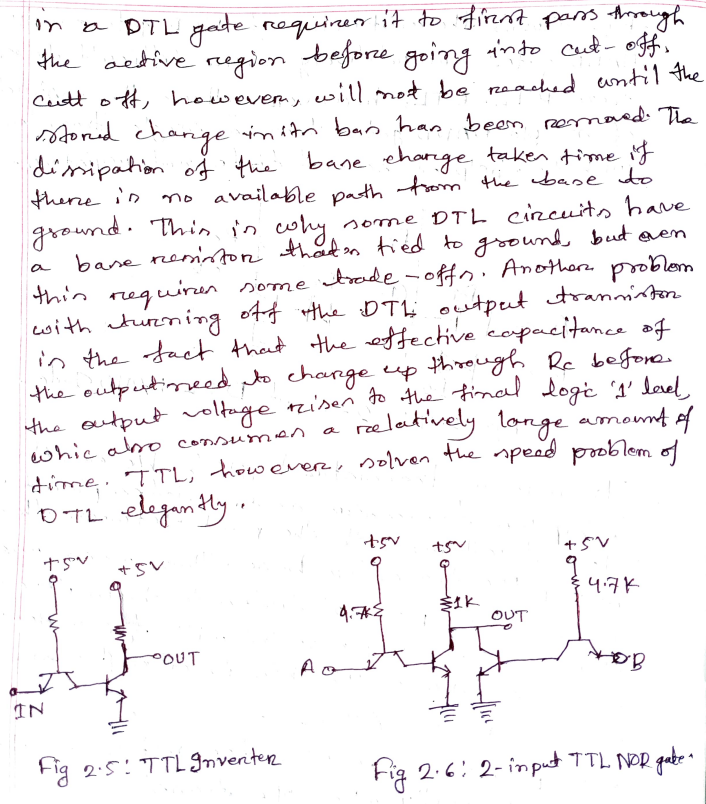 in a DTL gate requires it to first pass through
the active region before going into cut-off.
Cutt off, however, will not be reached until the
stored change in its bas has been removed. The
dissipation of the base charge takes time if
there is no available path from the base to
ground. This is why some DTL circuits have
a base resistor that's tied to ground, but even
this requires some trade-offs. Another problem
with turning off the DTL output transistor
is the fact that the effective capacitance of
the output need to charge up through Rc before
the output voltage rises to the final logic '1' level,
whic also consumes a relatively large amount of
time. TTL, however, solves the speed problem of
DTL elegantly.
+5V +5V
OUT
IN
Fig 2.5: TTL Inverter
+5V +5V +5V
4.7K 1K 4.7K
OUT
A B
Fig 2.6: 2-input TTL NOR gate.